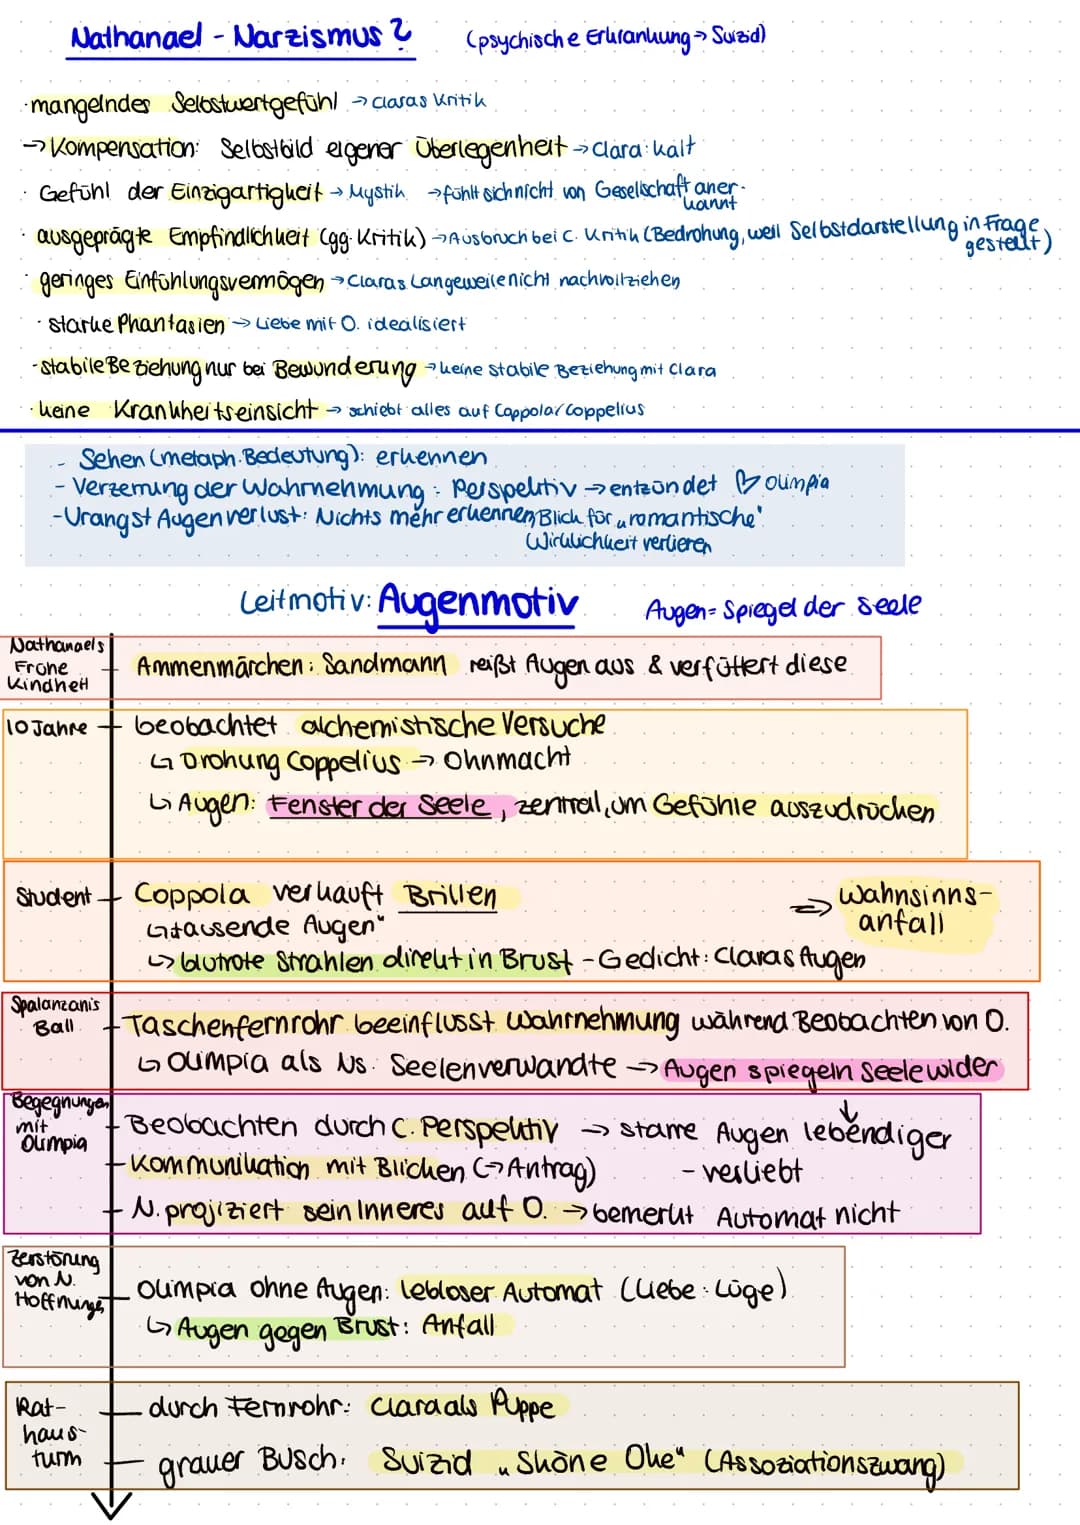 Nathanael - Narzismus? (psychische Erkrankung → Suizid)
· mangelndes Selbstwertgefühl → Claras Kritik
→ Kompensation: Selbstbild eigener Überlegenheit → Clara: kalt
· Gefühl der Einzigartigkeit → Mystik → fühlt sich nicht von Gesellschaft anerkannt
· ausgeprägte Empfindlichkeit (gg. Kritik) → Ausbruch bei C. Kritik (Bedrohung, weil Selbstdarstellung in Frage gestellt)
· geringes Einfühlungsvermögen → Claras Langeweile nicht nachvollziehen
· starke Phantasien → Liebe mit O. idealisiert
- stabile Beziehung nur bei Bewunderung → keine stabile Beziehung mit Clara
· keine Krankheitseinsicht → schiebt alles auf Coppola/Coppelius
- Sehen (metaph. Bedeutung): erkennen
- Verzerrung der Wahrnehmung: Perspektiv → entzündet ♡ Olimpia
- Urangst Augenverlust: Nichts mehr erkennen, Blick für „romantische'
Wirklichkeit verlieren
Leitmotiv: Augenmotiv Augen = Spiegel der Seele
Nathanaels
Frühe
Kindheit
Ammenmärchen: Sandmann reißt Augen aus & verfüttert diese
10 Jahre
beobachtet alchemistische Versuche
↳ Drohung Coppelius → Ohnmacht
↳ Augen: Fenster der Seele, zentral, um Gefühle auszudrücken
Student
Coppola verkauft Brillen
↳ tausende Augen"
↳ blutrote Strahlen direkt in Brust - Gedicht: Claras Augen
⇒ Wahnsinns-
anfall
Spalanzanis
Ball
Taschenfernrohr beeinflusst Wahrnehmung während Beobachten von O.
↳ Olimpia als Ns. Seelenverwandte → Augen spiegeln Seele wider
Begegnungen
mit
Olimpia
Beobachten durch C. Perspektiv → starre Augen lebendiger
- Kommunikation mit Blicken (→ Antrag) - verliebt
- N. projiziert sein Inneres auf O. → bemerkt Automat nicht
Zerstörung
von N.
Hoffnungen
Olimpia ohne Augen: lebloser Automat (Liebe: Lüge)
↳ Augen gegen Brust: Anfall
Rat-
haus-
turm
durch Fernrohr: Clara als Puppe
grauer Busch: Suizid „Sköne Oke" (Assoziationszwang)